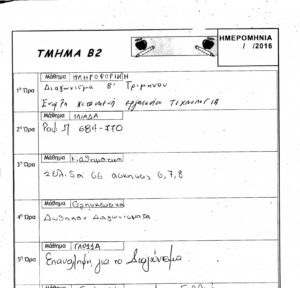 ΤΜΗΜΑ Β2
ΗΜΕΡΟΜΗΝΙΑ
/ /2016
1η Ώρα
Μάθημα ΠΛΗΡΟΦΟΡΙΚΗ
Διαγώνισμα Β' Τριμήνου
εργασία ΤΕΧΝΟΛΟΓΙΑ
2η Ώρα
Μάθημα ΙΛΙΑΔΑ
Ραψ Π 684-770
3η Ώρα
Μάθημα Μαθηματικά
Σελίδα 66 ασκήσεις 6,7,8
4η Ώρα
Μάθημα Θρησκευτικά
Δώθηκαν Διαγωνίσματα
5η Ώρα
Μάθημα ΓΛΩΣΣΑ
Επανάληψη για το Διαγώνισμα
Μάθημα